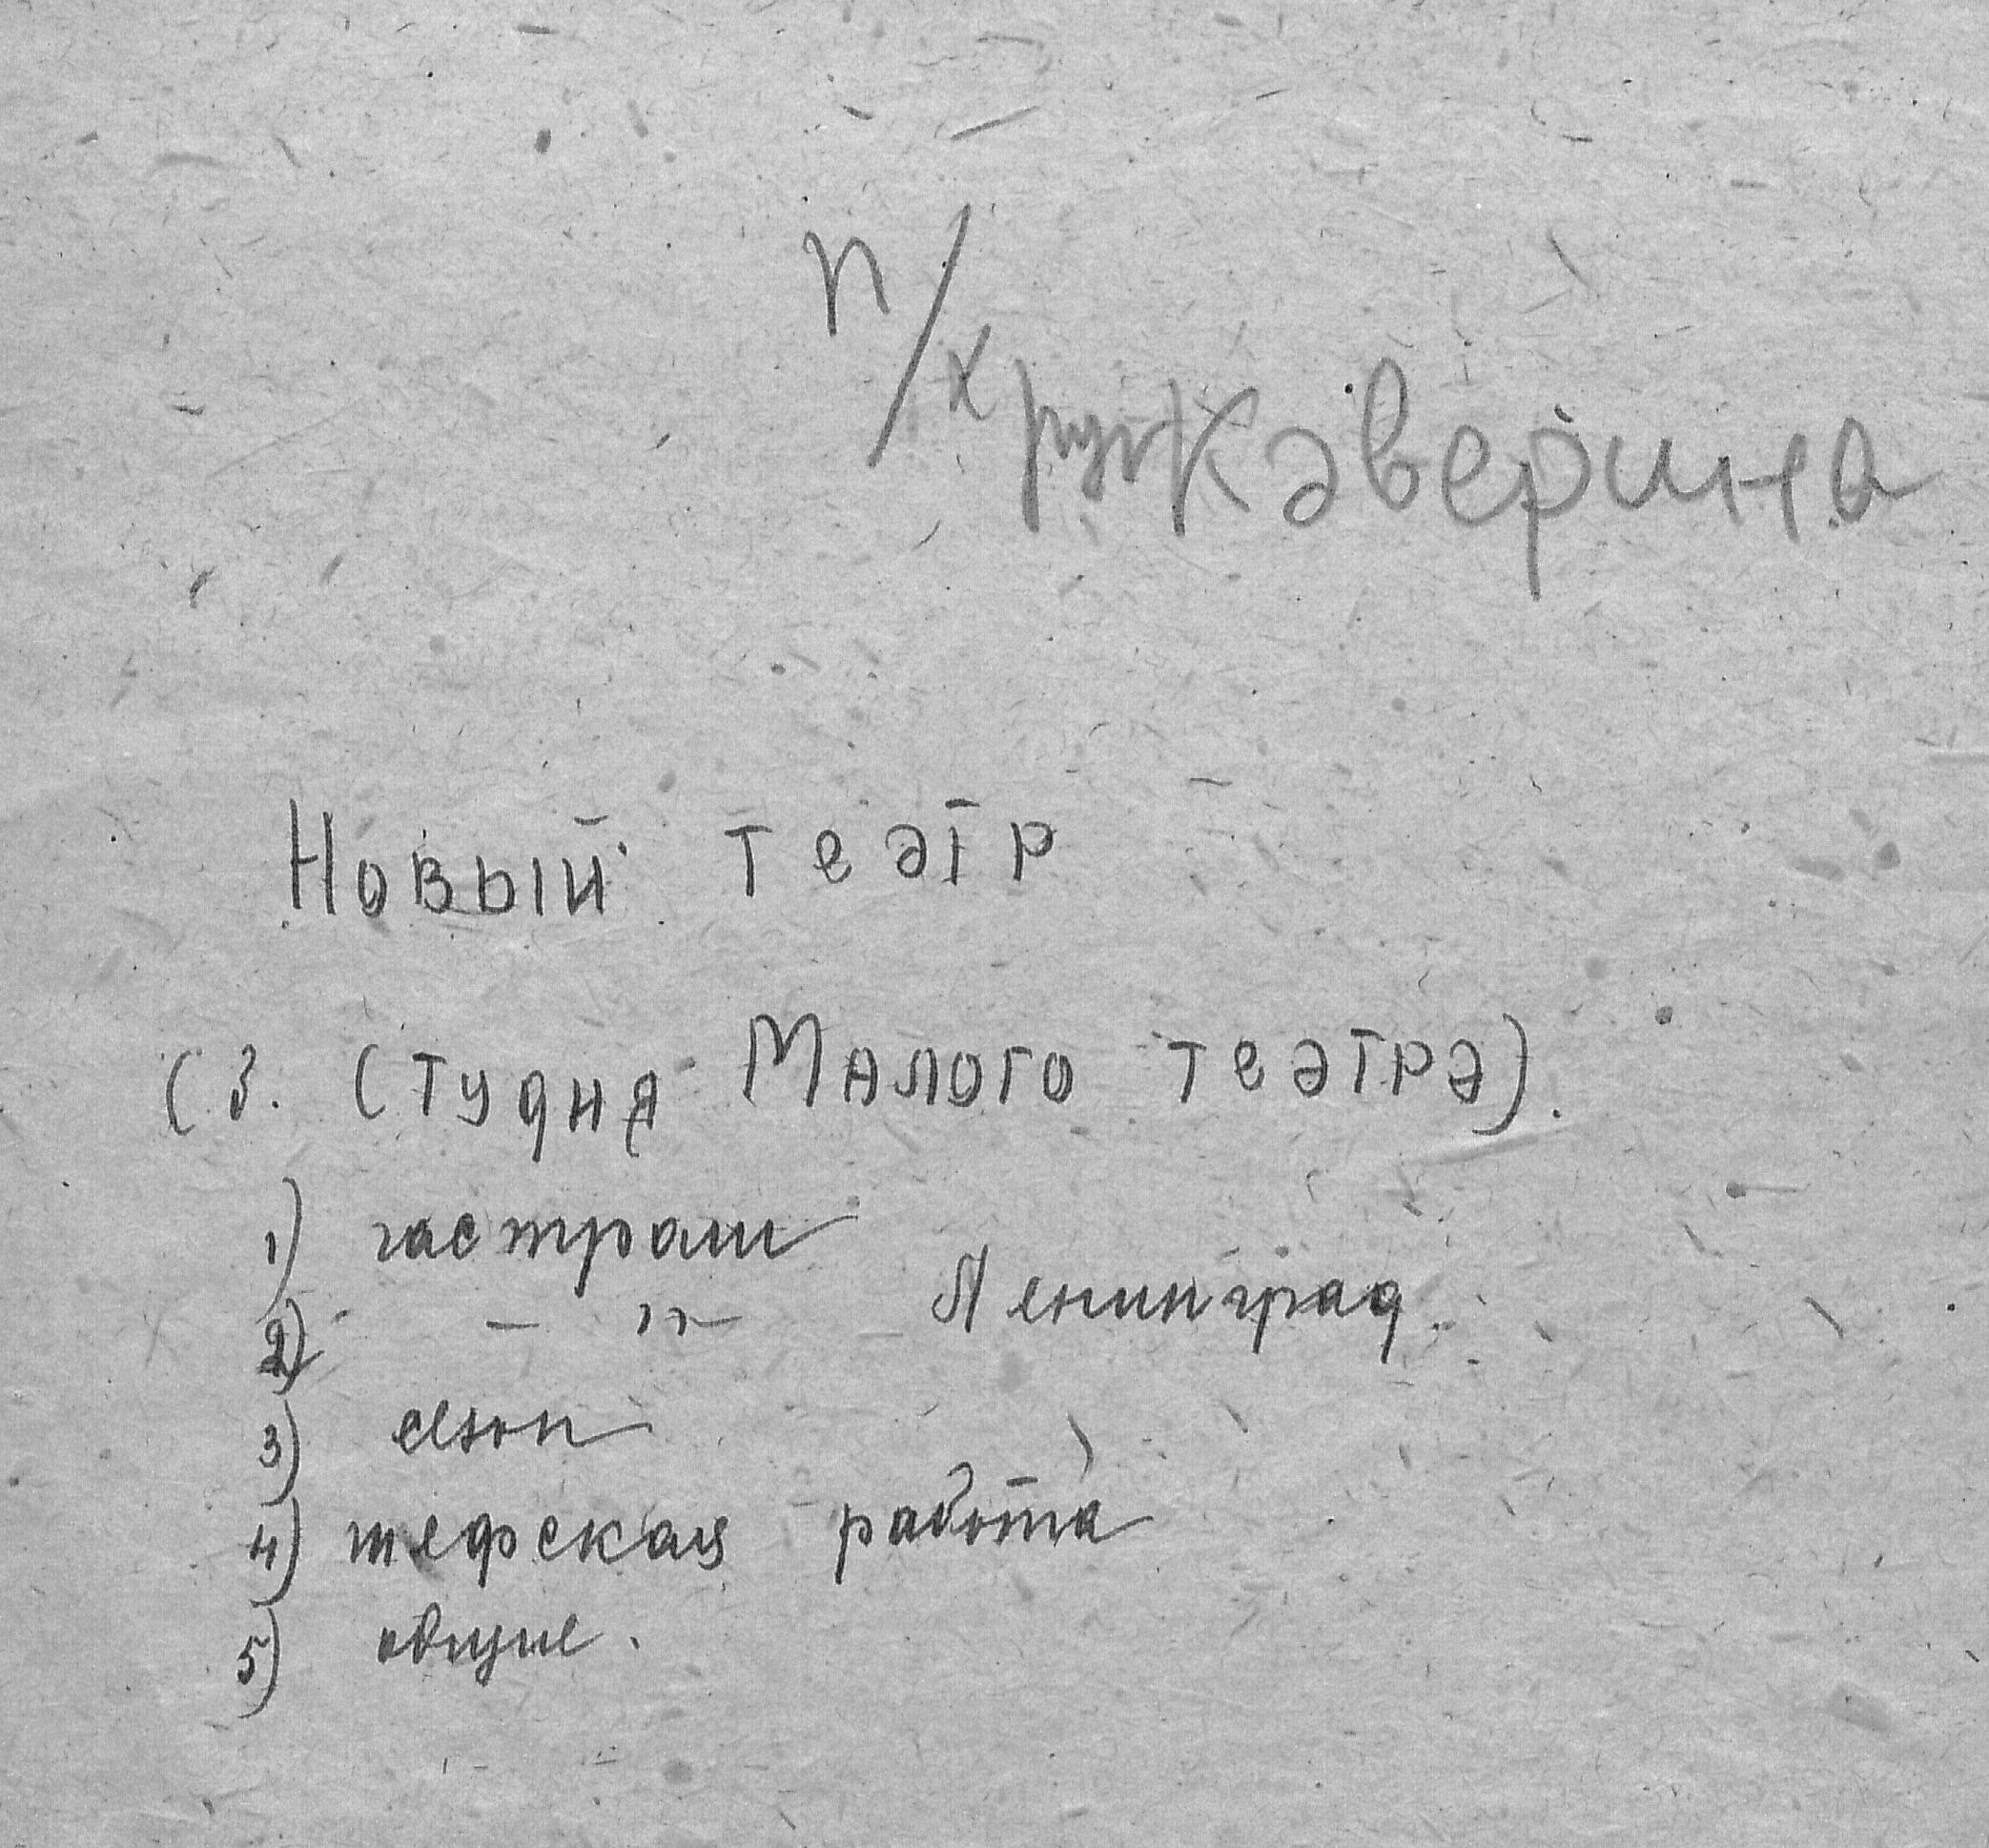 п/худ рук Каверина
Новый театр
(З. Студия Малого театра).
1) гастроли
2) — „ — Ленинград.
3) сезон
4) шефская работа
5) общие.